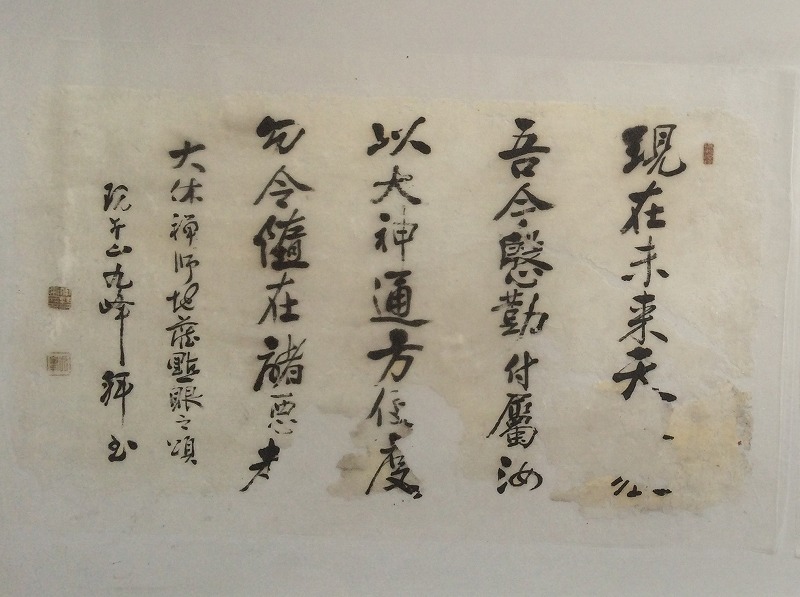 現在未来天
吾今慇勤付屬汝
以大神通方便度
勿令墮在諸悪
大休禅師地蔵點眼之頌
山九峰 拝書